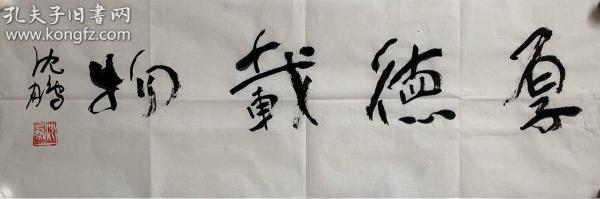 孔夫子旧书网
www.kongfz.com
厚德載物
沈鹏